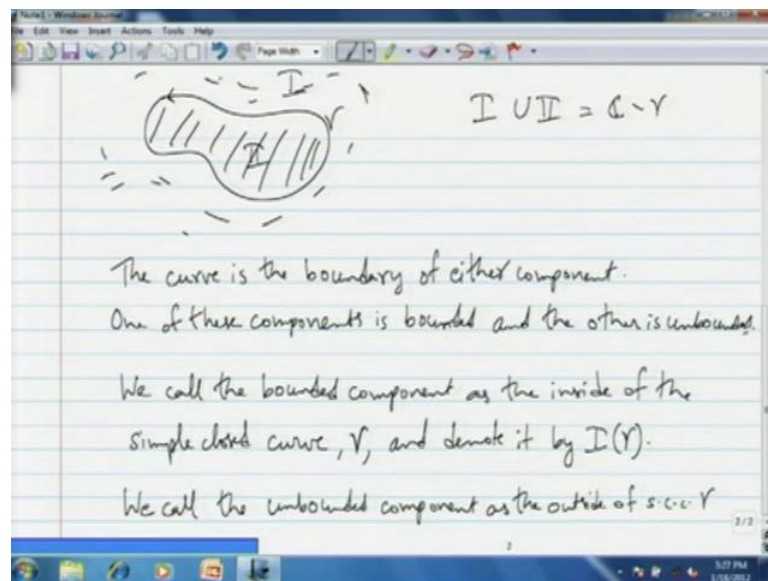 Note1 - Windows Journal
File Edit View Insert Actions Tools Help
Page Width
I
γ
II
I ∪ II = ℂ \ γ
The curve is the boundary of either component.
One of these components is bounded and the other is unbounded.
We call the bounded component as the inside of the
simple closed curve, γ, and denote it by I(γ).
We call the unbounded component as the outside of s.c.c. γ
2/2
2
3:27 PM
1/18/2012